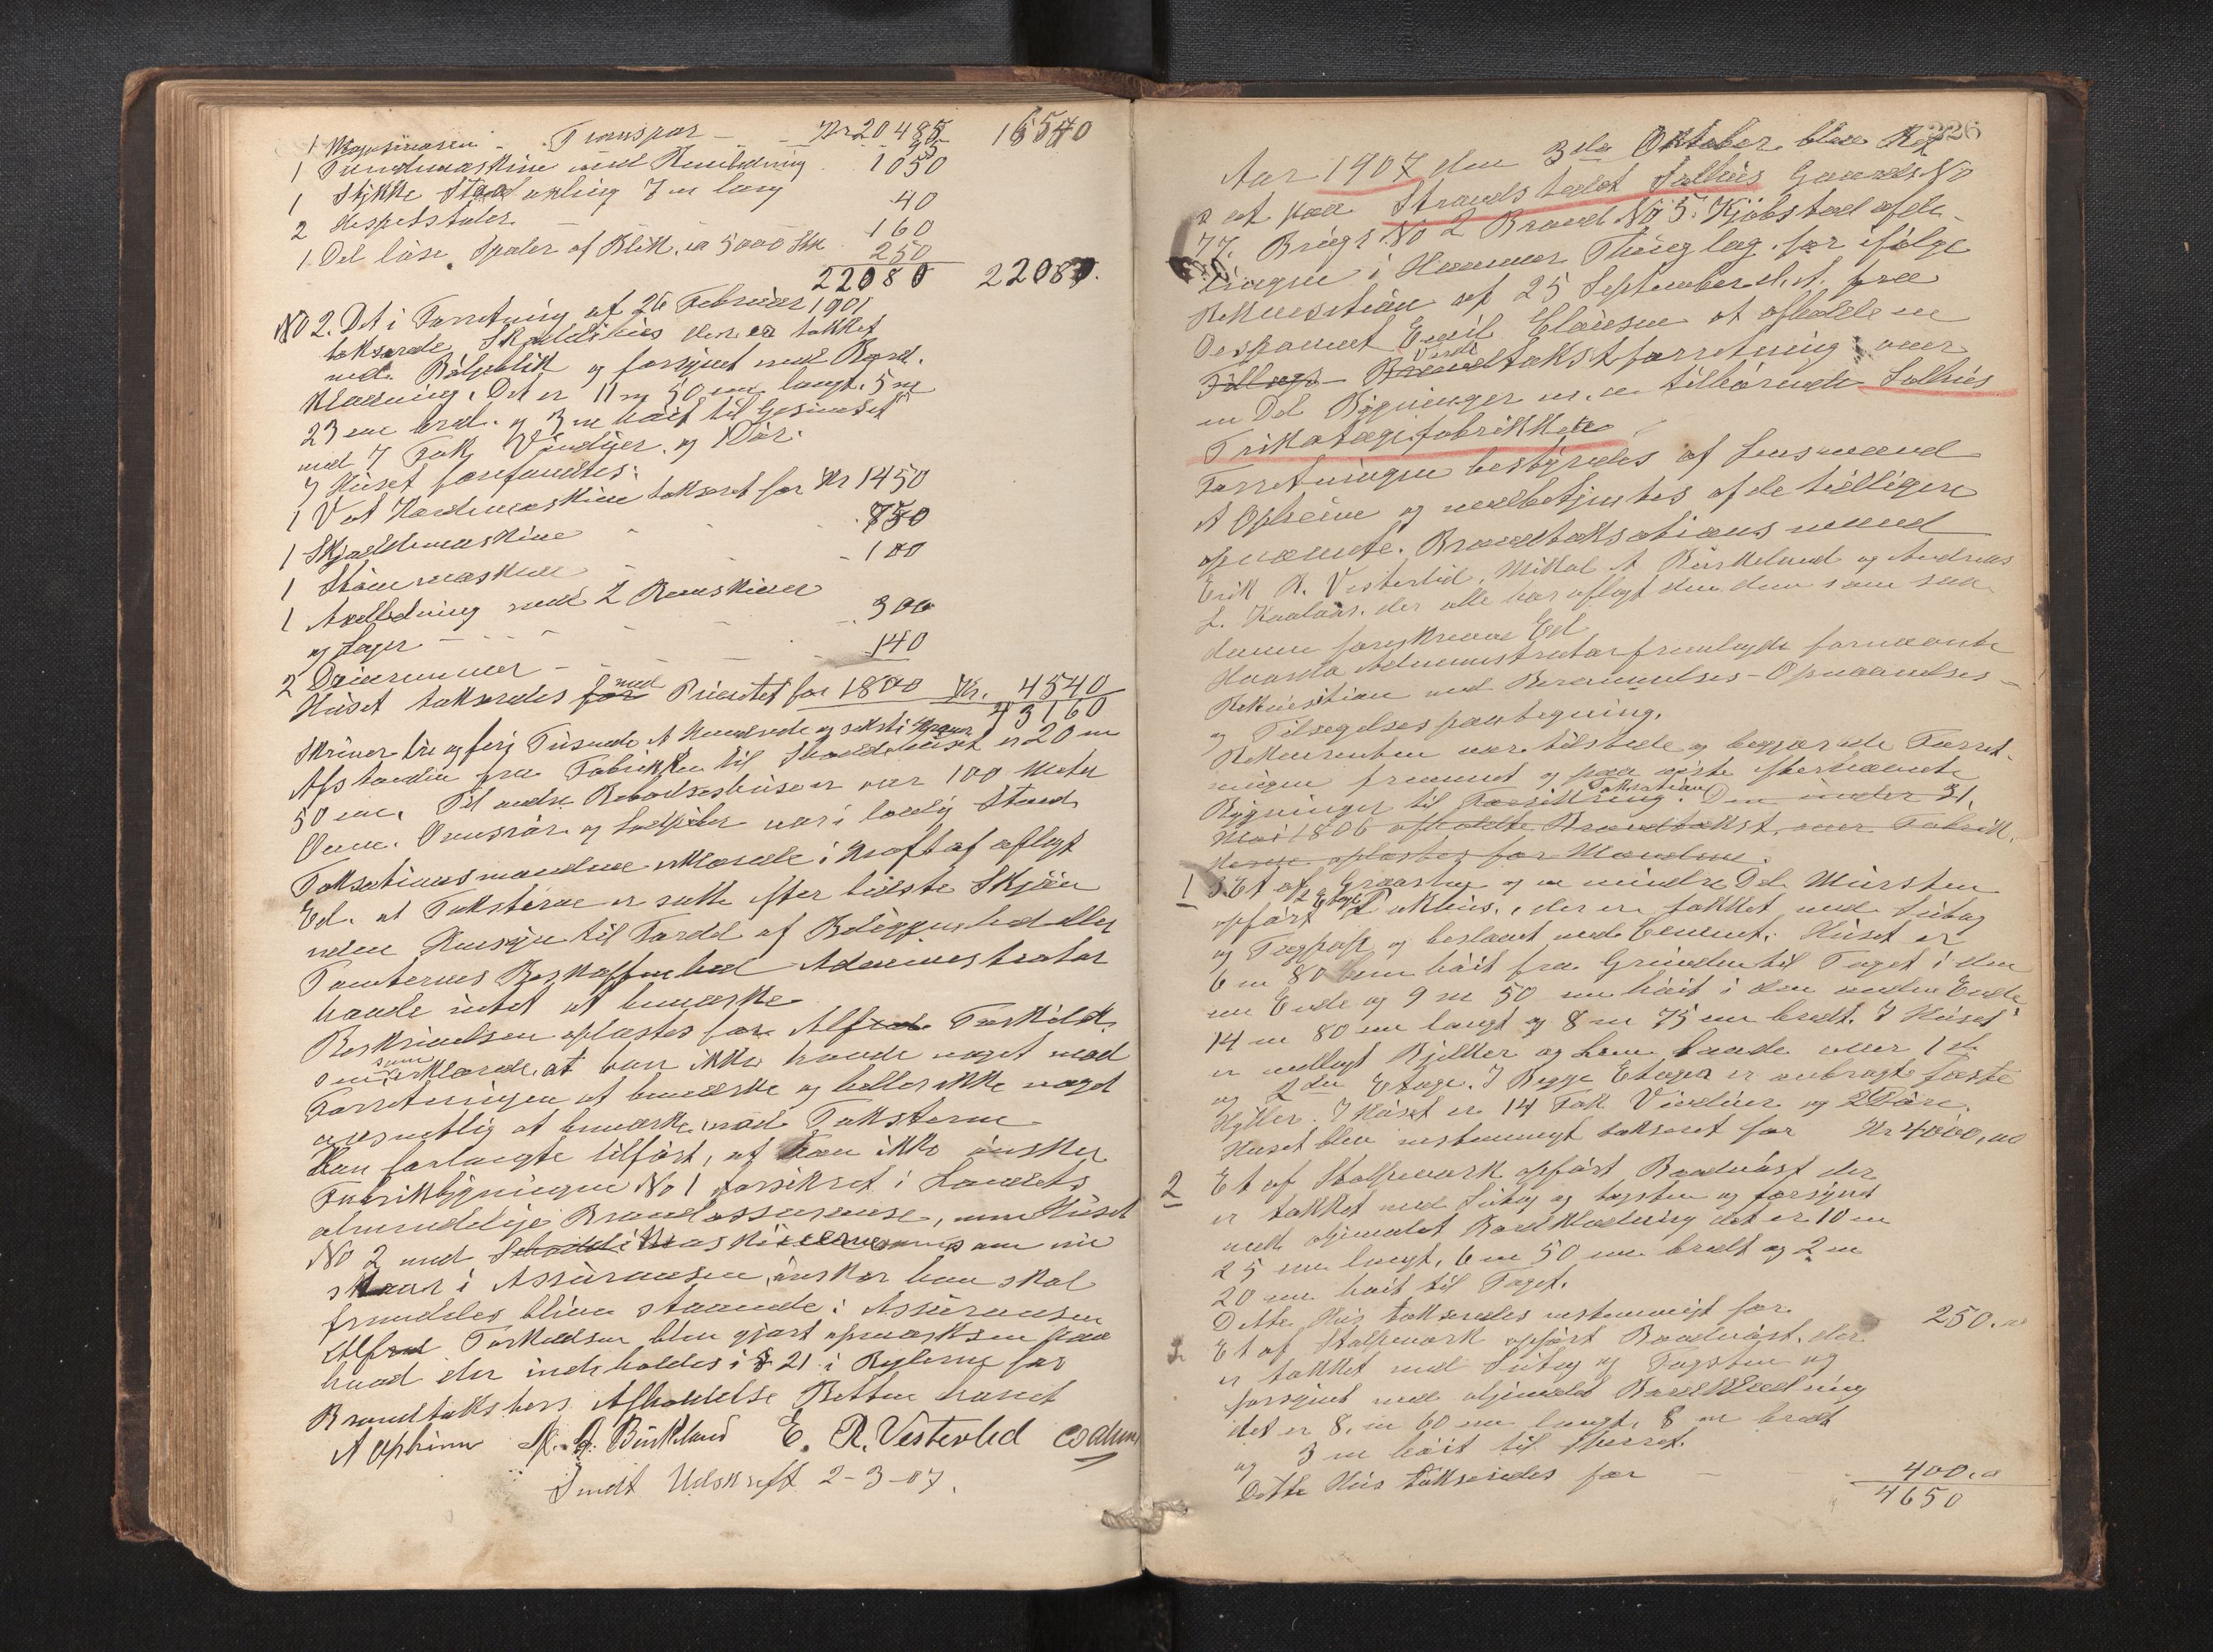 Transpor - - Kr 20485 16540
1 Tvindmaskine med Remledning 1050
1 Stykke 7 m lang 40
2 Hespestoler - 160
1 Del løse Spoler af Blik, ca 5000 Stk 250
22080 22080.
No 2. Det i Forretning af 26 Februar 1901
takserede der er tækket
med Bølgeblik og forsynet med Bord-
klædning. Det er 11 m 50 cm langt, 5 m
23 cm bred. og 3 m høit til Gesimset
med 7 Fak Vinduer og Dør.
I Huset forefandtes:
1 Vat Kardemaskine takseret for Kr 1450
1 Skjoddemaskine - 750
1 maskine - 100
1 Axelledning med 2 Remskiver
og Lager - - - 300
2 - - - 140
Huset takseredes for med Privatet for 1800 Kr. 4540
43160
Skriver tre og førti Tusende et Hundrede og seksti Kroner
Afstanden fra Fabrikken til huset er 20 m
50 cm. Til andre Beboelseshuse er over 100 Meter
Ovne. Ovnsrør og var i lovlig Stand
Taksationsmændene erklærede i Kraft af aflagt
Ed. at Taksterne er satte efter bedste Skjøn
uden Hensyn til Fordel af Beliggenhed eller
Tomternes Beskaffenhed Administrator
havde intet at bemærke
Beskrivelsen oplæstes for Alfred Torkilds.
som erklærede, at han ikke havde noget mod
Forretningen at bemærke og heller ikke noget
væsentlig at bemærke mod Taksterne
Han forlangte tilført, at han ikke ønsker
Fabrikbygningen No 1 forsikret i Landets
almindelige Brandassurance, men Huset
No 2 med som nu
staar i Assurancen, ønsker han skal
fremdeles blive staaende i Assurancen
Alfred Torkildsen blev gjort opmærksom paa
hvad der indeholdes i § 21 i Reglerne for
Brandtaksters Afholdelse Retten hævet
A Opheim M. A. Birkeland E. R. Vesterlid
Sendt Udskrift 2-3-07.
226
Aar 1907 den 3die Oktober blev Ret
sat paa Strandstedet Salhus Gaards No
77. Brugs No 2 Brand No 5. Kjøbstad afde-
lingen i Hammer Thinglag for ifølge
Rekvisition af 25 September d. A. fra
Disponent Emil Clausen at afholde en
Tillægs - Brandtakstforretning over
Værdi
en Del Bygninger m. m. tilhørende Salhus
Trikotagefabrikker
Forretningen bestyredes af Lensmand
A Opheim og medbetjentes af de tidligere
opnævnte. Brandtaksationsmænd
Erik R. Vesterlid, Mikal A Birkeland og Andreas
L. Kaalaas. der alle har aflagt den dem som saa
danne foreskrevne Ed
Administrator fremlagde fornævnte
Rekvisition med Berammelses - Opnævnelses -
og Tilsigelsespaategning.
Rekvirenten var tilstede og begjærede Forret-
ningen fremmet og paa viste efternævnte
Bygninger til Forsikring. Den under 31.
Taksation
Mai 1806 afholdte Brandtakst over Fabrik-
kerne oplæstes for Mændene.
1 3. Et af Graasten og en mindre Del Mursten
opført 2 Etages Pakhus, der er tækket med Sutag
og Tagpap og beslaaet med Cement. Huset er
6 m 80 cm høit fra Grunden til Taget i den
ene Ende og 9 m 50 cm høit i den anden Ende
14 m 80 cm langt og 8 m 75 cm bredt. I Huset
er nedlagt Bjelker og Lem baade over 1ste
og 2den Etage. I Begge Etager er anbragt faste
Hylder. I Huset er 14 Fak Vinduer og 2 Døre.
Huset blev enstemmigt takseret for Kr 4000,00
2 Et af Stolpeverk opført Baadnøst der
er tækket med Sutag og tagsten og forsynet
med oljemalet Bordklædning det er 10 m
25 cm langt, 6 m 50 cm bredt og 2 m
20 cm høit til Taget.
Dette Hus takseredes enstemmigt for 250.00
3. Et af Stolpeverk opført Baadnøst. der
er tækket med Sutag og Tagsten og
forsynet med oljemalet Bordklædning
det er 8. m 60 cm langt, 8 m bredt
og 3 m høit til Sperret.
Dette Hus takseredes for - 400.00
4650